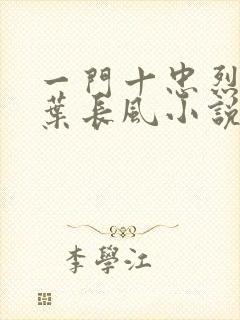 一門十忠烈
葉長風小說
李學江